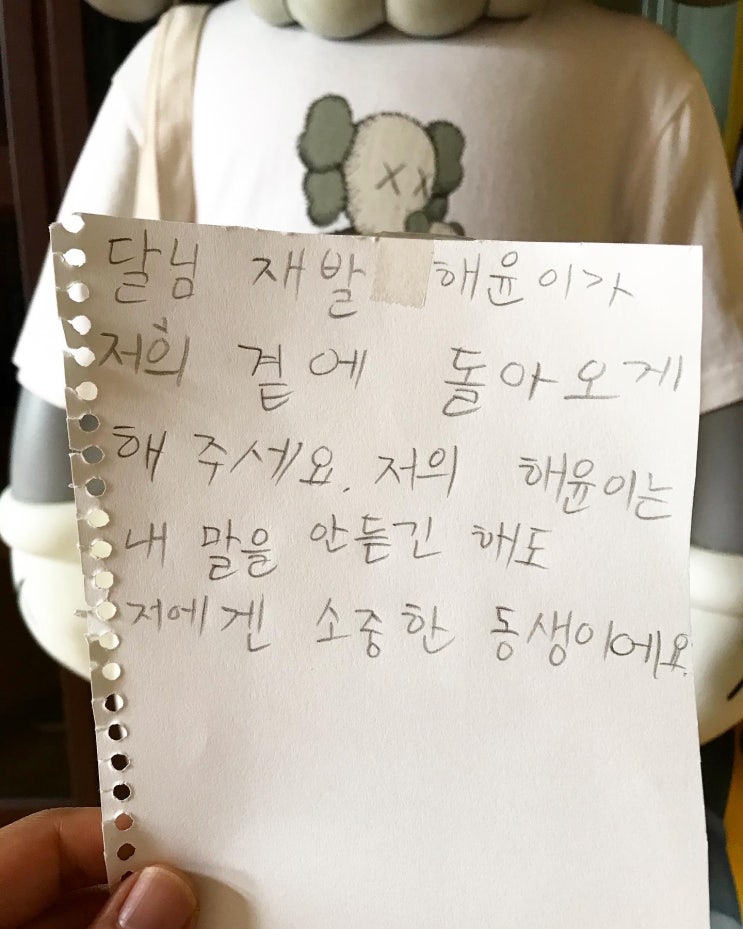 달님 재발 해윤이가
저희 곁에 돌아오게
해 주세요. 저의 해윤이는
내 말을 안듣긴 해도
저에겐 소중한 동생이에요.
XX